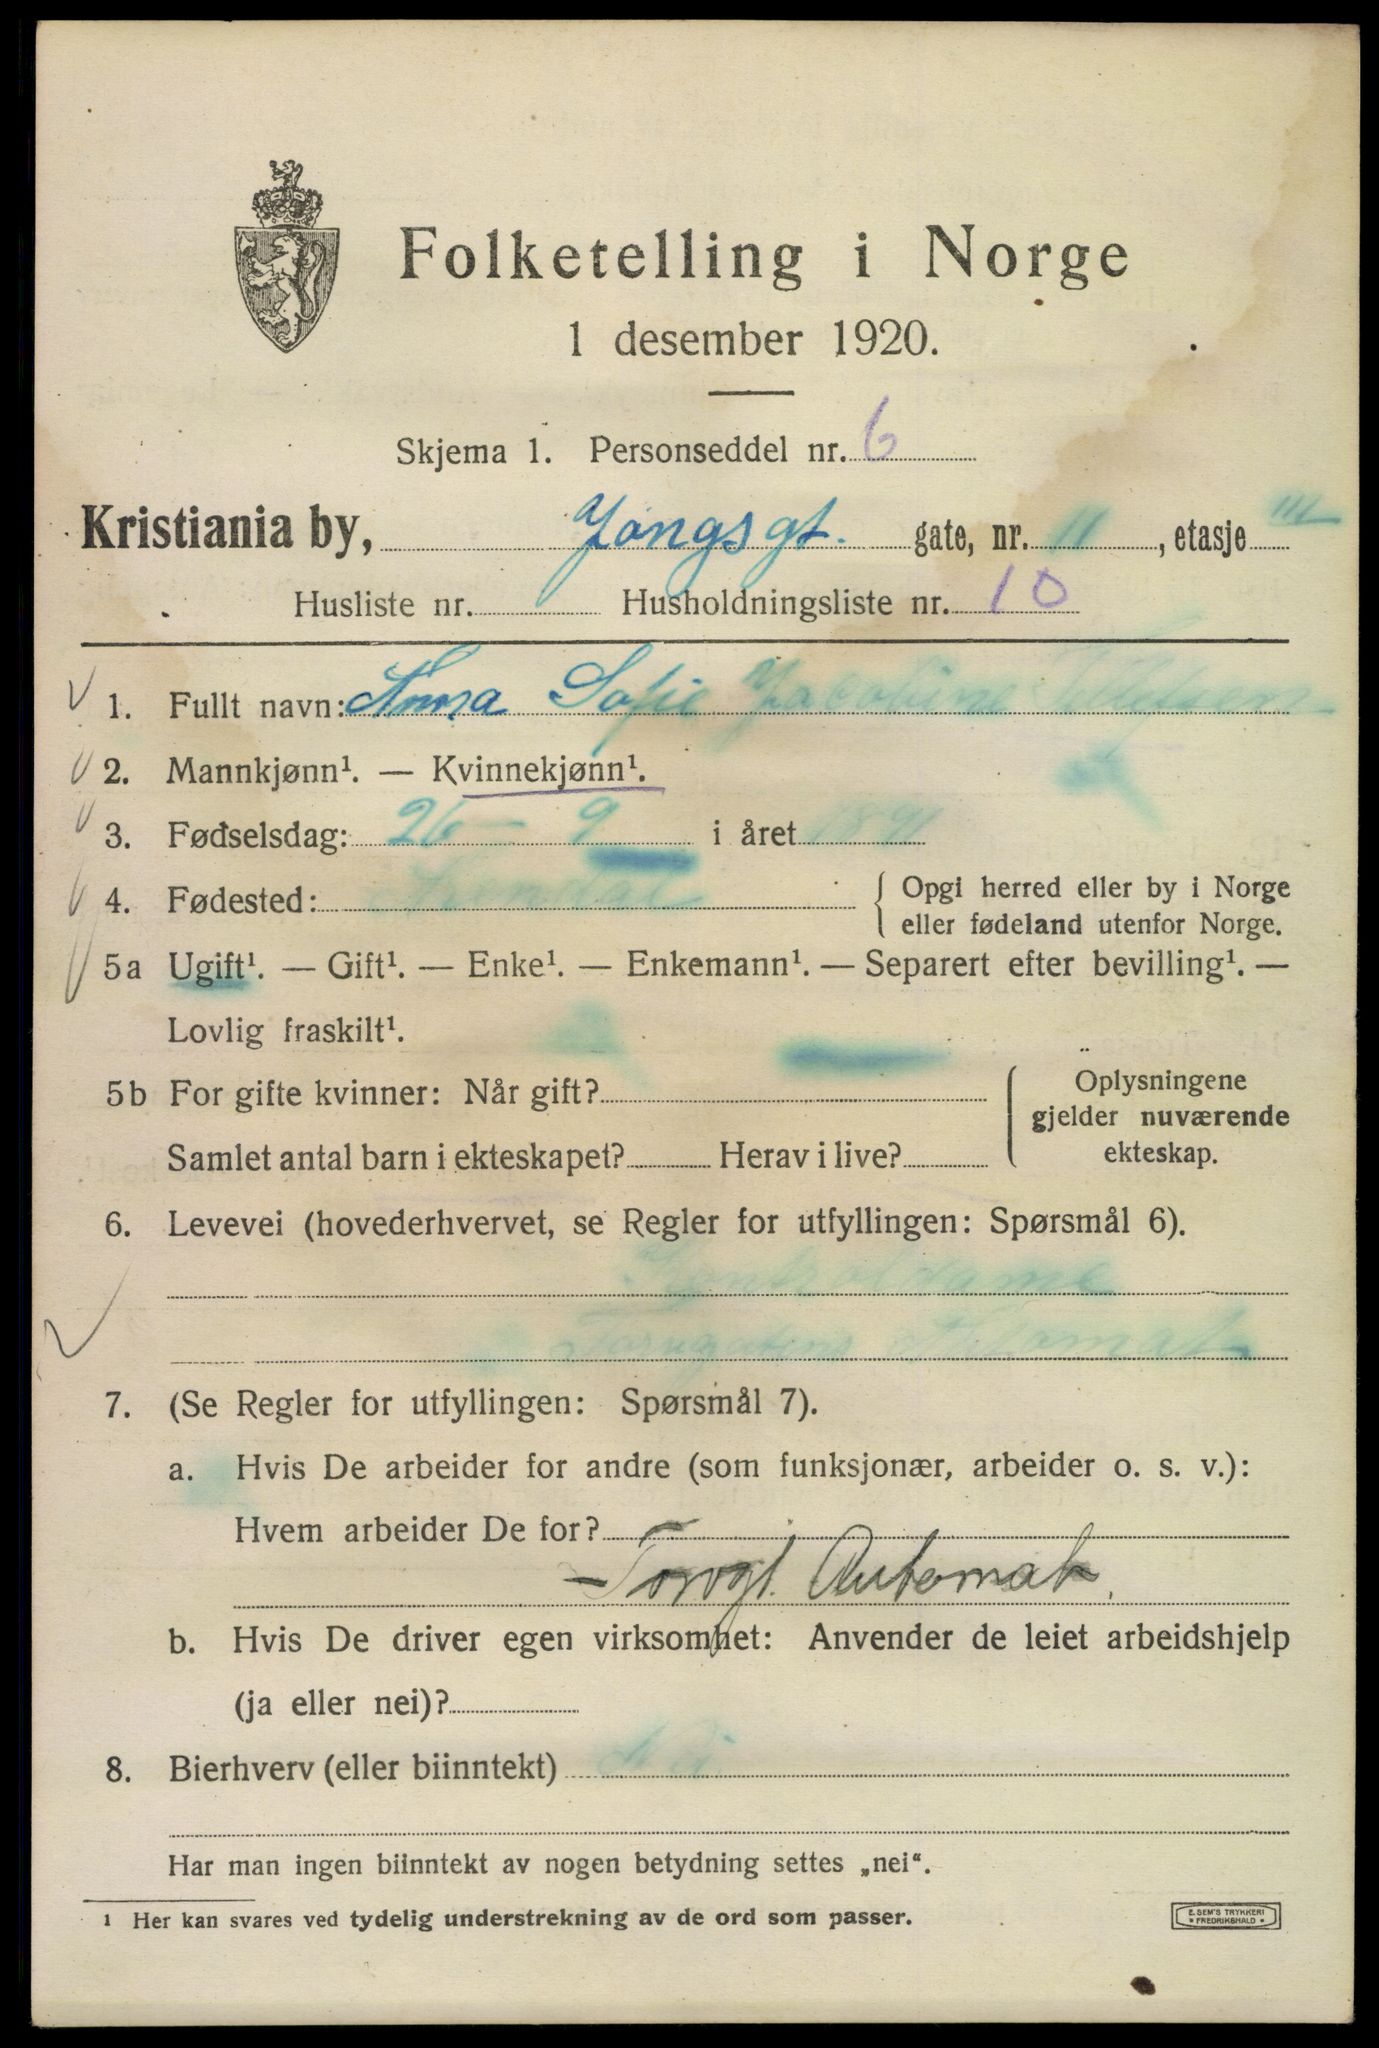 Folketelling i Norge
1 desember 1920.
Skjema 1. Personseddel nr. 6
Kristiania by, Yongsgt. gate, nr. 11, etasje III
Husliste nr. Husholdningsliste nr. 10
1. Fullt navn: Anna Sofie Jacobine
2. Mannkjønn¹. — Kvinnekjønn¹.
3. Fødselsdag: 26 – 9 i året 1891
4. Fødested: { Opgi herred eller by i Norge
eller fødeland utenfor Norge.
5a Ugift¹. — Gift¹. — Enke¹. — Enkemann¹. — Separert efter bevilling¹. —
Lovlig fraskilt¹.
5b For gifte kvinner: Når gift? { Oplysningene
gjelder nuværende
Samlet antal barn i ekteskapet? Herav i live? ekteskap.
6. Levevei (hovederhvervet, se Regler for utfyllingen: Spørsmål 6).
Kontroldame
Torvgatens Automat
7. (Se Regler for utfyllingen: Spørsmål 7).
a. Hvis De arbeider for andre (som funksjonær, arbeider o. s. v.):
Hvem arbeider De for?
Torvgt. Automat.
b. Hvis De driver egen virksomhet: Anvender de leiet arbeidshjelp
(ja eller nei)?
8. Bierhverv (eller biinntekt) Nei
Har man ingen biinntekt av nogen betydning settes „nei“.
¹ Her kan svares ved tydelig understrekning av de ord som passer.
E. SEM'S TRYKKERI
• FREDRIKSHALD •